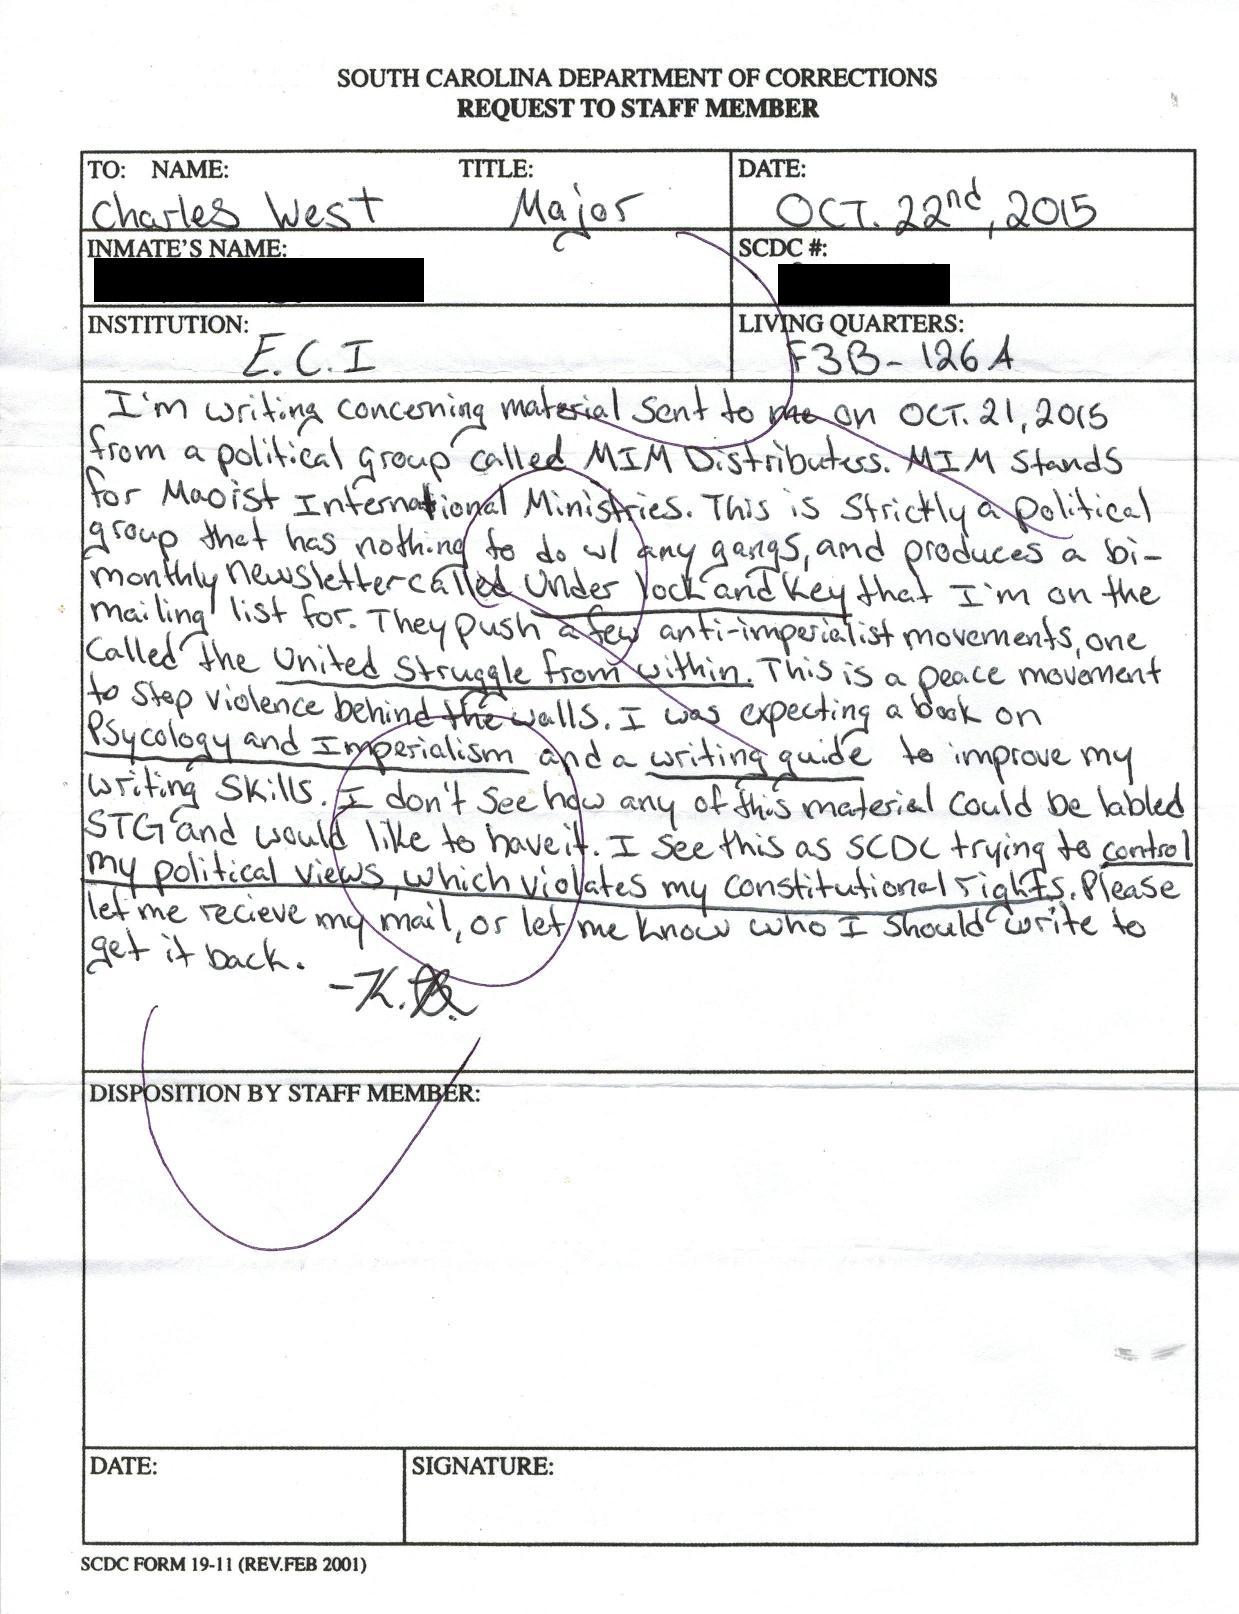 SOUTH CAROLINA DEPARTMENT OF CORRECTIONS
REQUEST TO STAFF MEMBER
TO: NAME: TITLE: DATE:
Charles West Major OCT. 22nd, 2015
INMATE'S NAME: SCDC #:
INSTITUTION: LIVING QUARTERS:
E.C.I F3B-126A
I'm writing concerning material sent to me on OCT. 21, 2015
from a political group called MIM Distributers. MIM stands
for Maoist International Ministries. This is strictly a political
group that has nothing to do w/ any gangs, and produces a bi-
monthly newsletter called Under lock and key that I'm on the
mailing list for. They push a few anti-imperialist movements, one
called the United Struggle from within. This is a peace movement
to stop violence behind the walls. I was expecting a book on
Psycology and Imperialism and a writing guide to improve my
writing skills. I don't see how any of this material could be labled
STG and would like to have it. I see this as SCDC trying to control
my political views, which violates my constitutional rights. Please
let me recieve my mail, or let me know who I should write to
get it back.
-K.
DISPOSITION BY STAFF MEMBER:
DATE: SIGNATURE:
SCDC FORM 19-11 (REV.FEB 2001)